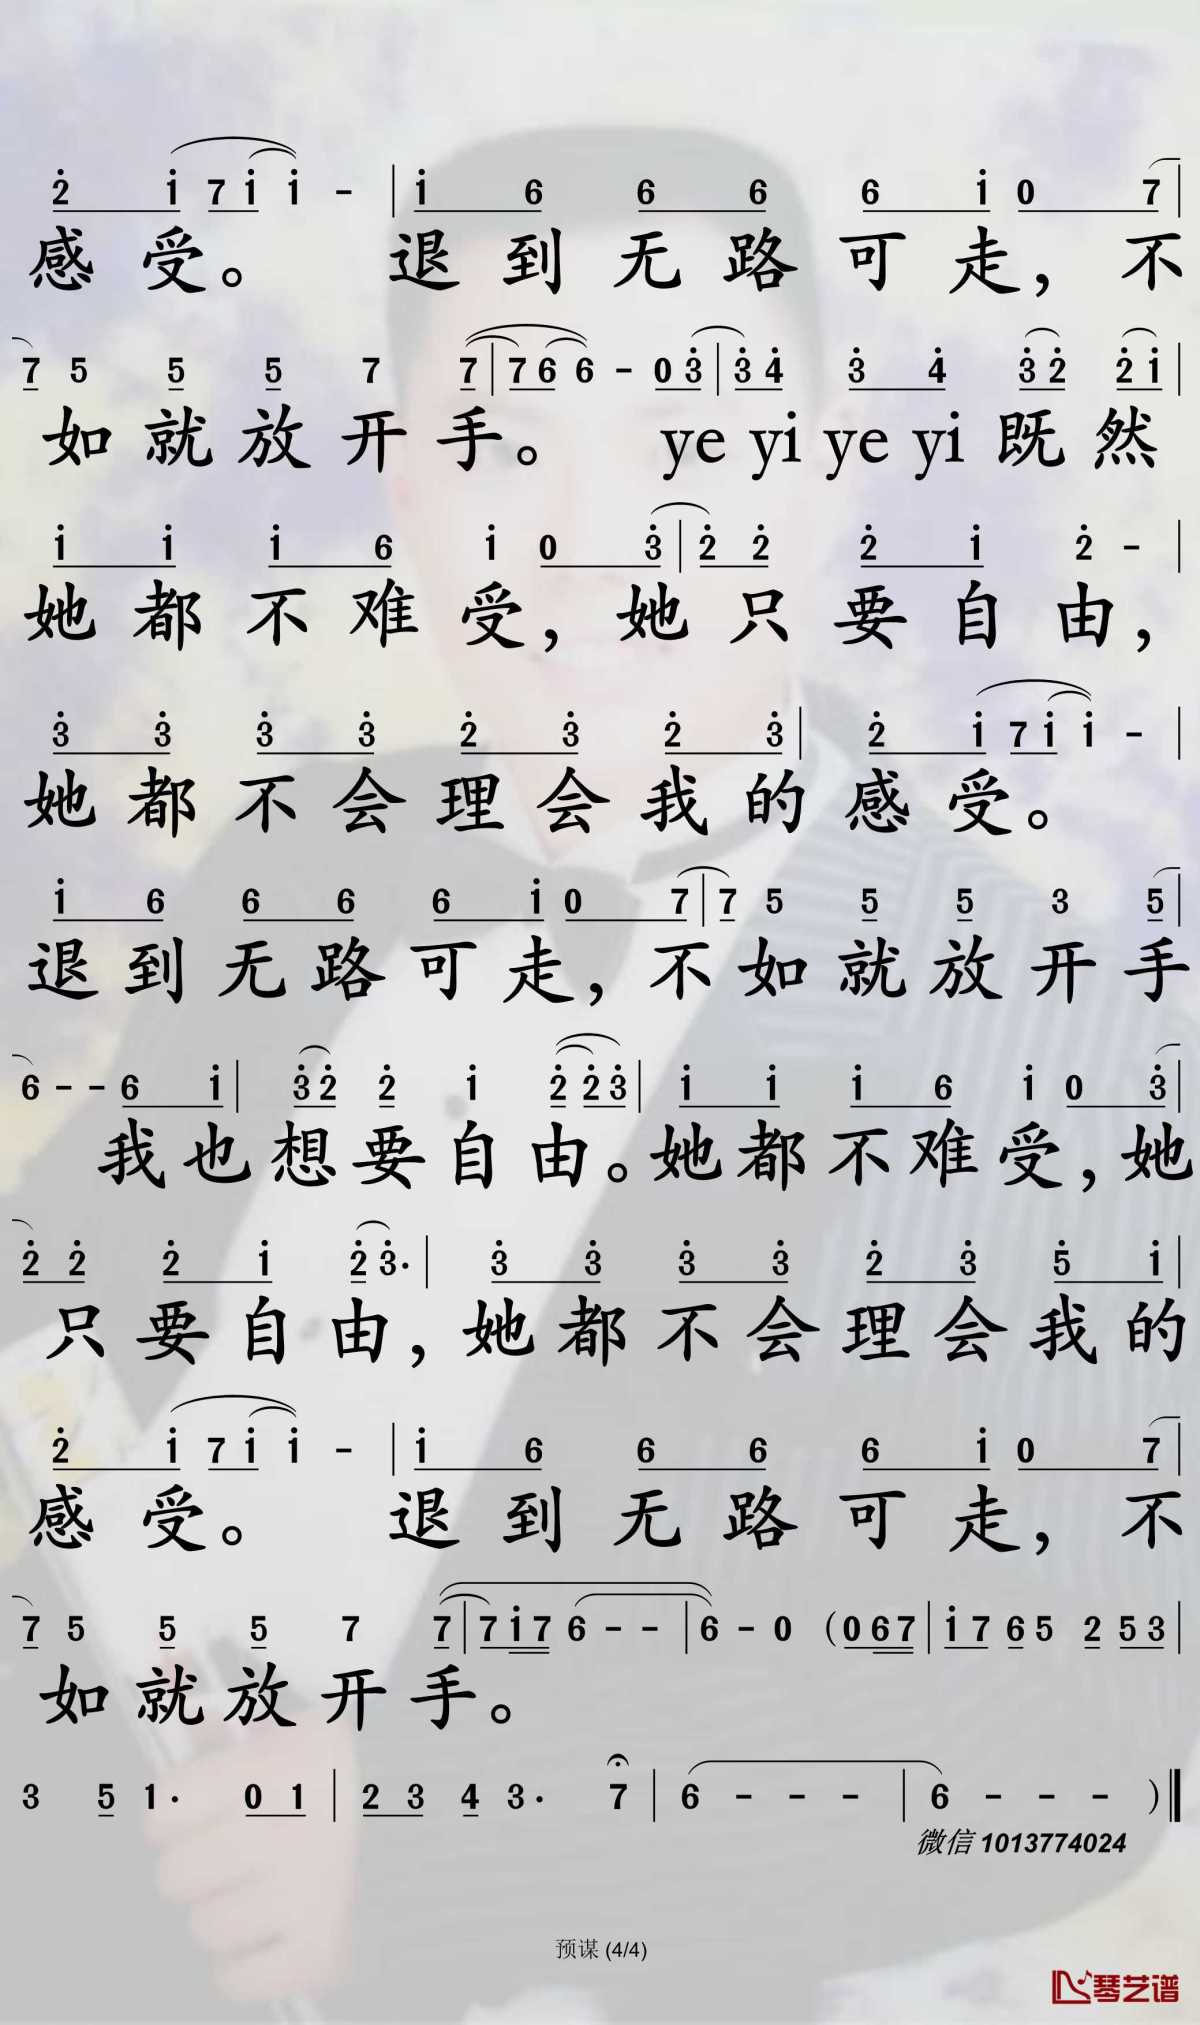 2̇ 1̇ 7 1̇ 1̇ - | 1̇ 6 6 6 6 1̇ 0 7 |
感受。 退到无路可走,不
7 5 5 5 7 7 | 7 6 6 - 0 3̇ | 3̇ 4̇ 3̇ 4̇ 3̇ 2̇ 2̇ 1̇ |
如就放开手。 ye yi ye yi 既然
1̇ 1̇ 1̇ 6 1̇ 0 3̇ | 2̇ 2̇ 2̇ 1̇ 2̇ - |
她都不难受,她只要自由,
3̇ 3̇ 3̇ 3̇ 2̇ 3̇ 2̇ 3̇ | 2̇ 1̇ 7 1̇ 1̇ - |
她都不会理会我的感受。
1̇ 6 6 6 6 1̇ 0 7 | 7 5 5 5 3 5 |
退到无路可走,不如就放开手
6 - - 6 1̇ | 3̇ 2̇ 2̇ 1̇ 2̇ 2̇ 3̇ | 1̇ 1̇ 1̇ 6 1̇ 0 3̇ |
我也想要自由。她都不难受,她
2̇ 2̇ 2̇ 1̇ 2̇ 3̇· | 3̇ 3̇ 3̇ 3̇ 2̇ 3̇ 5̇ 1̇ |
只要自由,她都不会理会我的
2̇ 1̇ 7 1̇ 1̇ - | 1̇ 6 6 6 6 1̇ 0 7 |
感受。 退到无路可走,不
7 5 5 5 7 7 | 7 1̇ 7 6 - - | 6 - 0 (0 6 7 | 1̇ 7 6 5 2 5 3 |
如就放开手。
3 5 1· 0 1 | 2 3 4 3· 7 | 6 - - - | 6 - - - )‖
微信 1013774024
预谋 (4/4)
琴艺谱